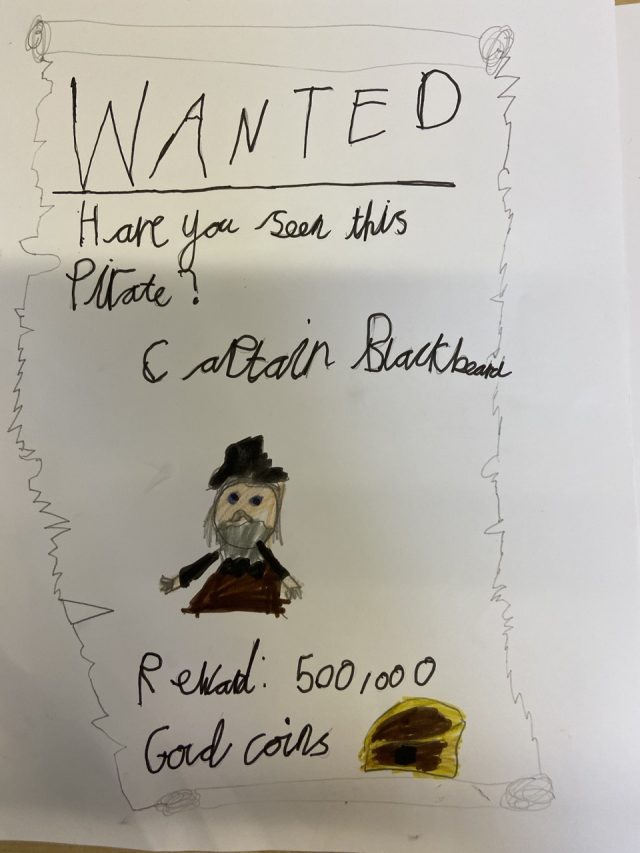 WANTED
Have you seen this
Pirate?
Captain Blackbeard
Reward: 500,000
Gold coins